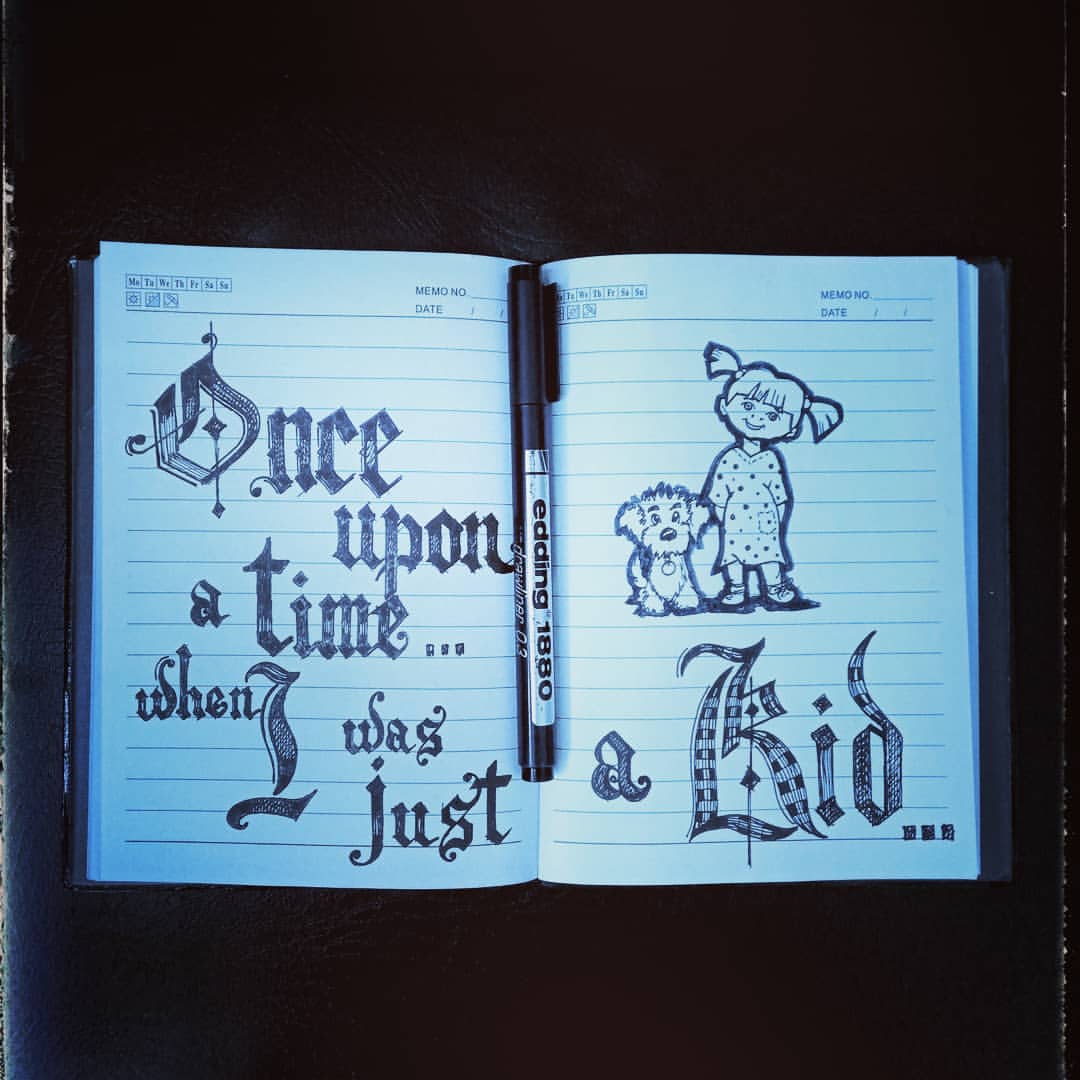 Mo Tu We Th Fr Sa Su
MEMO NO.
DATE / /
Once
upon
a time...
when I was
just
Tu We Th Fr Sa Su
MEMO NO.
DATE / /
a Kid...
edding 1880
drawliner 0.3